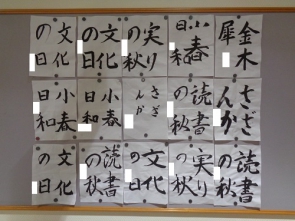 文化
の日
文化
の日
実り
の秋
小春
日和
金木
犀
小春
日和
小春
日和
さざ
んか
読書
の秋
さざ
んか
文化
の日
読書
の秋
文化
の日
実り
の秋
読書
の秋